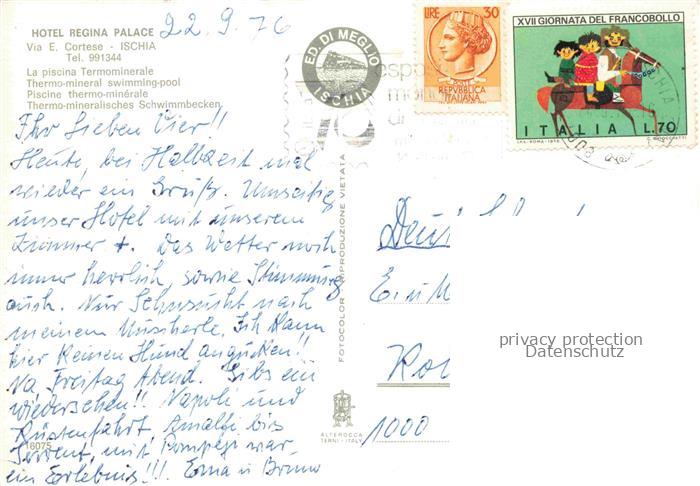 HOTEL REGINA PALACE
Via E. Cortese - ISCHIA
Tel. 991344
La piscina Termominerale
Thermo-mineral swimming-pool
Piscine thermo-minérale
Thermo-mineralisches Schwimmbecken
22.9.76
Ihr Lieben Vier!!
Heute, bei Halbzeit mal
wieder ein Gruß. Umseitig
unser Hotel mit unserem
Zimmer +. Das Wetter noch
immer herrlich, sowie Stimmung
auch. Nur Sehnsucht nach
meinem Ich kann
hier keinen Hund angucken!!
Na, Freitag Abend. Gibs ein
wiedersehen!! Napoli und
Küstenfahrt Amalfi bis
Sorrent, mit Pompeji war
ein Erlebnis!!! Erna u Bruno
6075
ED. DI MEGLIO
ISCHIA
LIRE 30
REPVBBLICA
ITALIANA
XVII GIORNATA DEL FRANCOBOLLO
ITALIA L.70
FOTOCOLOR RIPRODUZIONE VIETATA
ALTEROCCA
TERNI - ITALY
1000
privacy protection
Datenschutz